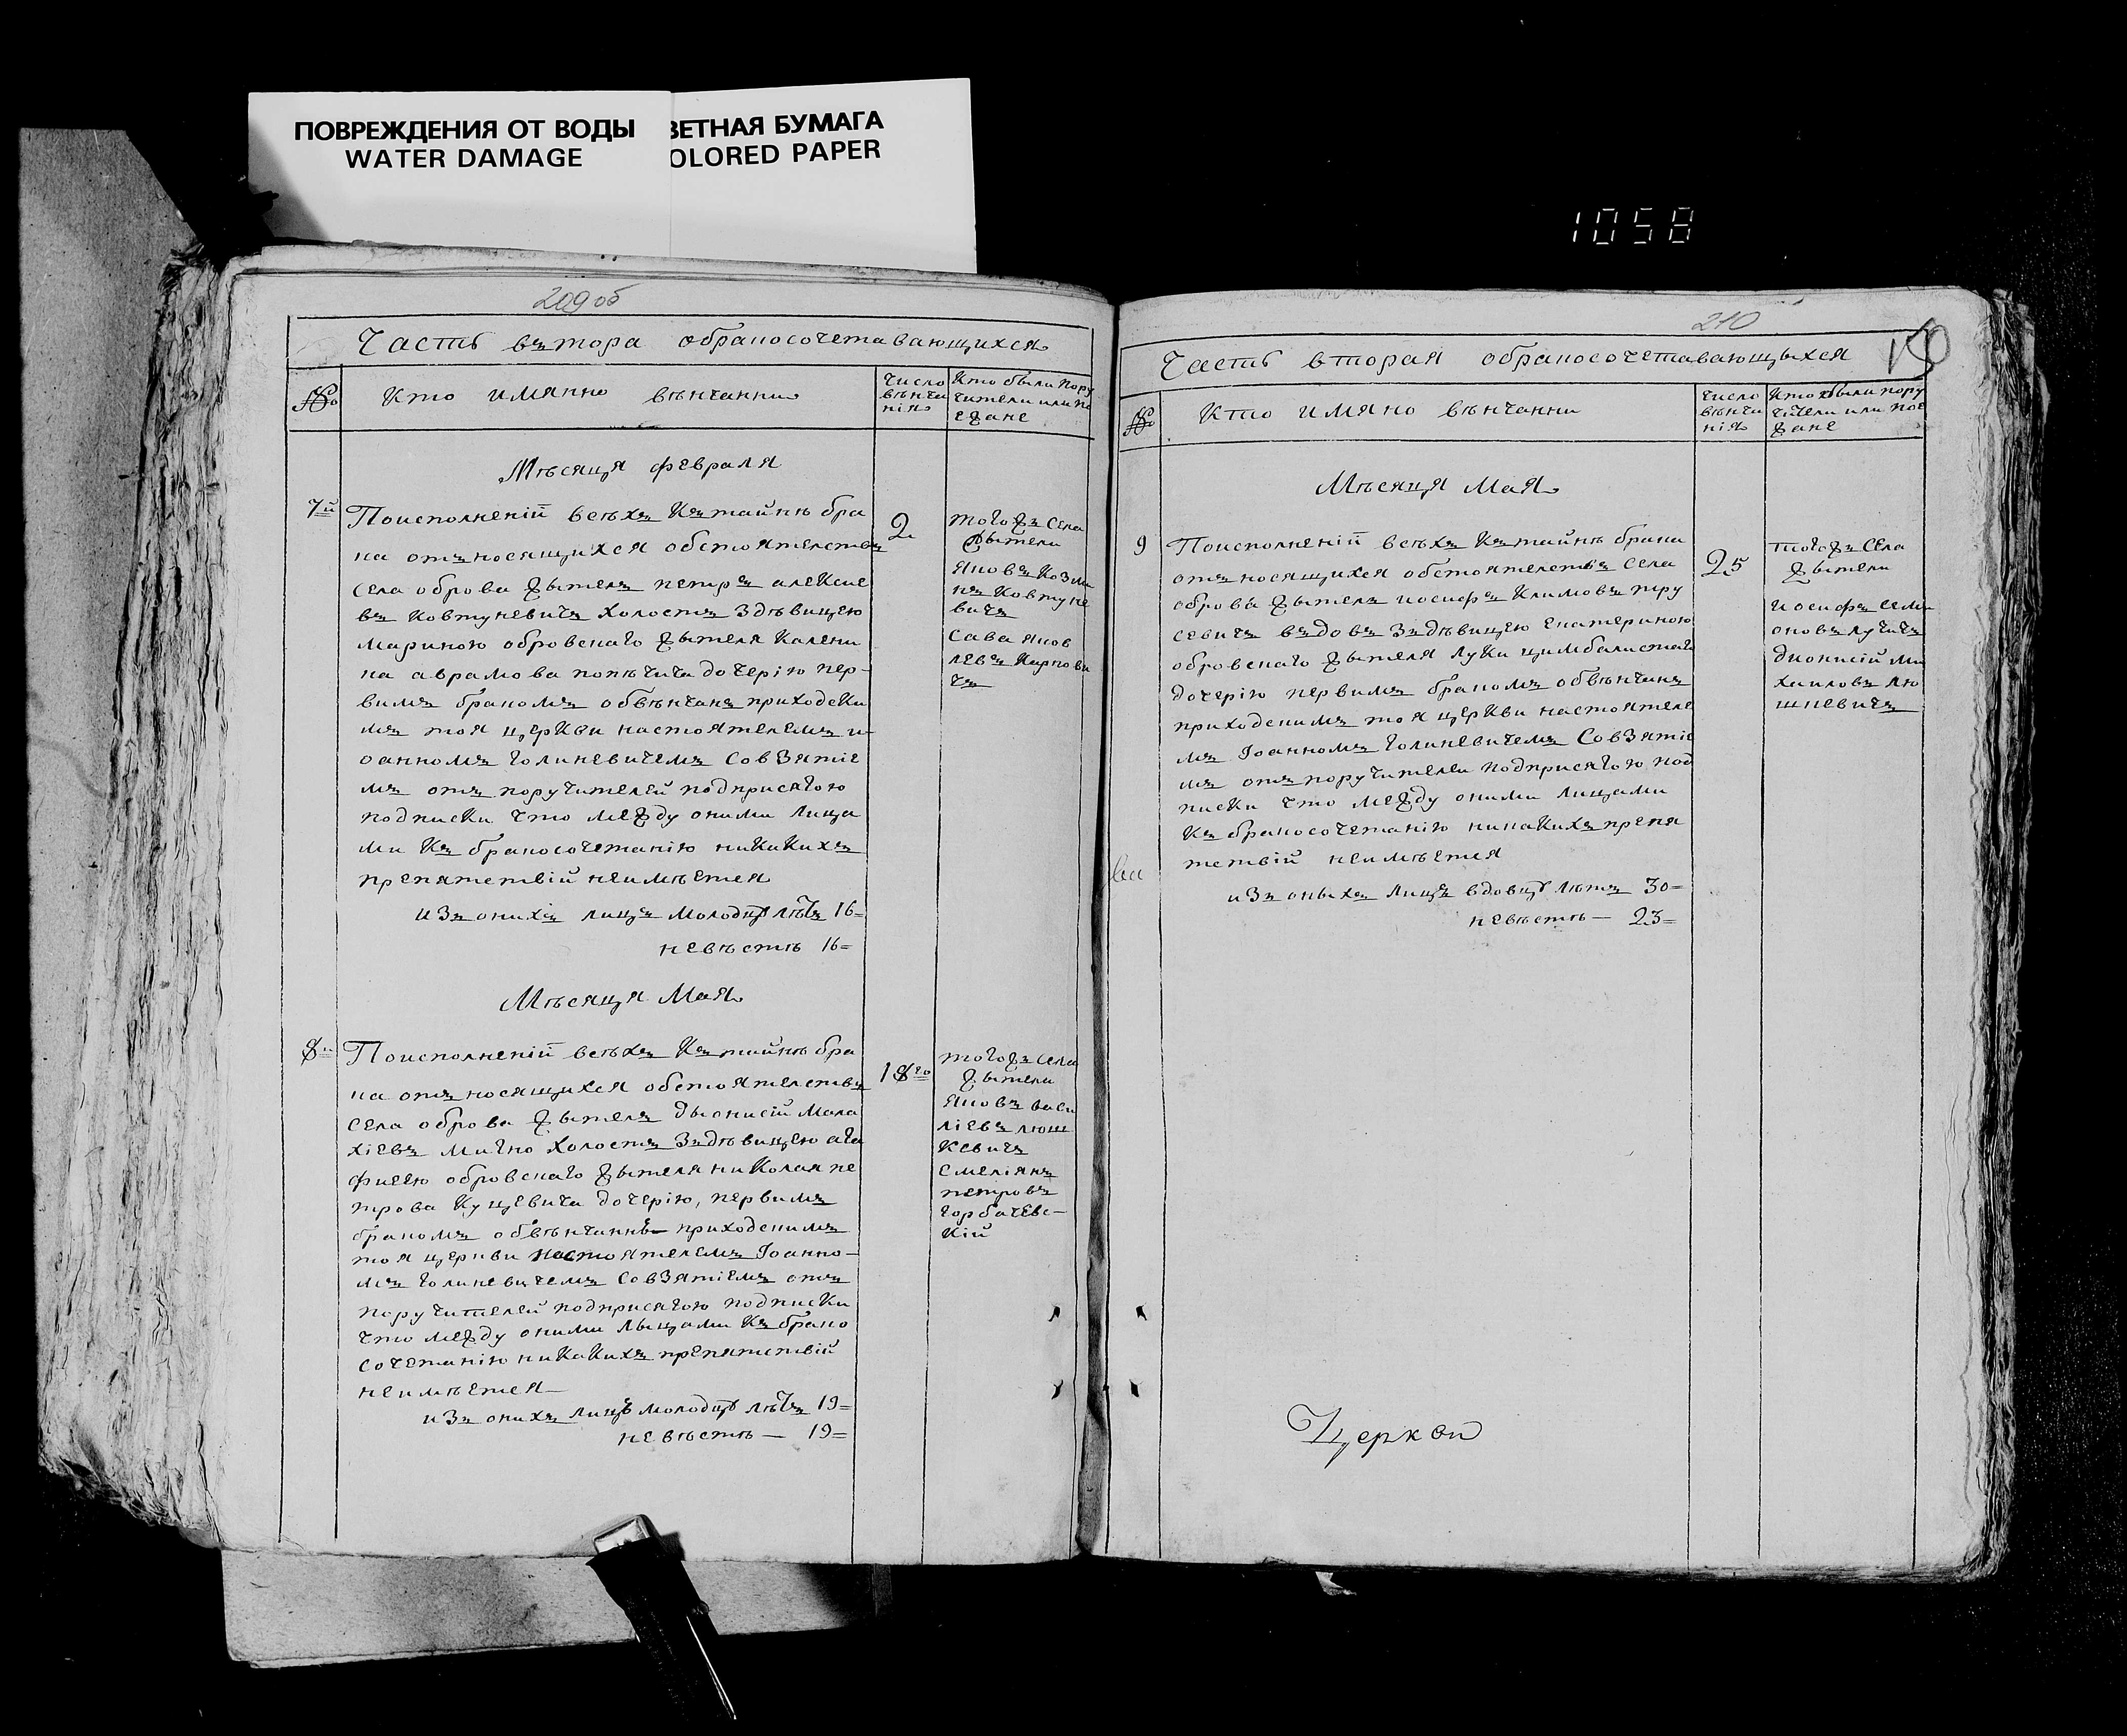 ПОВРЕЖДЕНИЯ ОТ ВОДЫ
WATER DAMAGE
ВЕТНАЯ БУМАГА
OLORED PAPER
1058
209об
Часть вътора обракосочетавающихся
№
Кто имянно вѣнчанни
число
вѣнча
нія
Кто были пору
чители или по
езжане
Мѣсяца февраля
7й
Поисполненій всѣхъ Къ тайнѣ бра
ка отъ носящихся обстоятелствъ
села оброва жытель петръ алексие
въ Ковтуневичъ холостъ здѣвицею
мариною обровскаго жытеля Калени
ка аврамова попѣчича дочерію пер-
вимъ бракомъ обвѣнчанъ приходски
мъ тоя церкви настоятелемъ и-
оанномъ Голиневичемъ совзятіе
мъ отъ поручителей подприсягою
подписки что между оними лица
ми Къ бракосочетанію никакихъ
препятствій неимѣется
изъ онихъ лицъ молодцу лѣтъ 16=
невѣстѣ 16=
2
тогожъ села
жытели
яковъ Козми
нъ Ковтуне
вичъ
Сава яков
левъ Карпови
чъ
Мѣсяца Мая
8й
Поисполненій всѣхъ Къ тайнѣ бра
ка отъ носящихся обстоятелствъ
села оброва жытель дыонисій мала
хіевъ мичко холостъ зъдѣвицею ага
фиею обровскаго жытеля николая пе
трова Куцевича дочерію, первимъ
бракомъ обвѣнчаннъ приходскимъ
тоя церкви настоятелемъ Іоанно-
мъ Голиневичемъ совзятіемъ отъ
поручителей подприсягою подписки
что между оними лыцами Къ брако
сочетанію никакихъ препятствій
неимѣется
изъ онихъ лицъ молодцу лѣтъ 19=
невѣстѣ — 19=
18го
тогожъ села
жытели
яковъ васи
ліевъ люш
кевичъ
емеліянъ
петровъ
горбачевс-
кій
210
Часть вторая обракосочетавающыхся
№
Кто имяно вѣнчанни
число
вѣнча
нія
Кто были пору
чители или пое
зжане
Мѣсяца Мая
9
Поисполненій всѣхъ Къ тайнѣ брака
отъ носящихся обстоятелствъ села
оброва жытель иосифъ Климовъ тру
севичъ въдовъ зъдѣвицею екатериною
обровскаго жытеля луки цимбалистаго
дочерію первимъ бракомъ обвѣнчанъ
приходскимъ тоя церкви настоятеле
мъ Іоанномъ Голиневичемъ Совзятіе
мъ отъ поручителей подприсягою под
писки что между оними лицами
Къ бракосочетанію никакихъ препя
тствій неимѣется
изъ оныхъ лицъ вдовцу лѣтъ 30=
невѣстѣ — 23=
25
тогожъ села
жытели
иосифъ семи
оновъ лучичъ
дионисій ми
хаиловъ лю
шкевичъ
Церкви